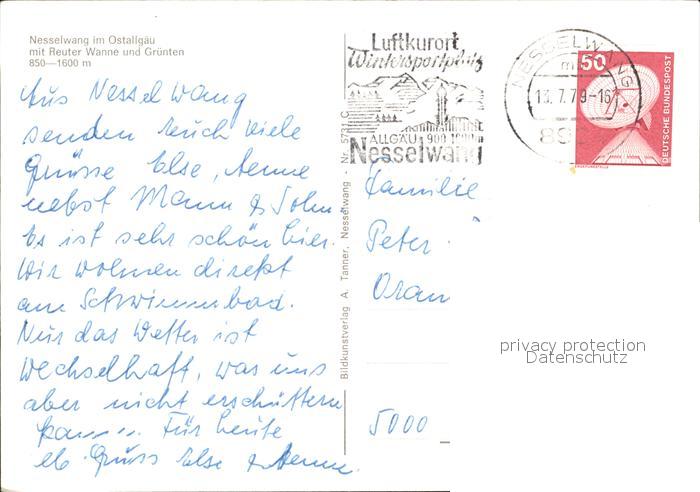 Nesselwang im Ostallgäu
mit Reuter Wanne und Grünten
850—1600 m
Aus Nesselwang
senden Euch viele
Grüsse Else, Aenne
nebst Mann & Sohn
Es ist sehr schön hier.
Wir wohnen direkt
am Schwimmbad.
Nur das Wetter ist
wechselhaft, was uns
aber nicht erschüttern
kann. Für heute
Gruss Else & Aenne.
Bildkunstverlag A. Tanner, Nesselwang - Nr. 5731 C
Luftkurort
Wintersportplatz
ALLGÄU 900-1600m
Nesselwang
NESSELWANG
13.7.79-16
89
50
DEUTSCHE BUNDESPOST
Familie
Peter
5000
privacy protection
Datenschutz